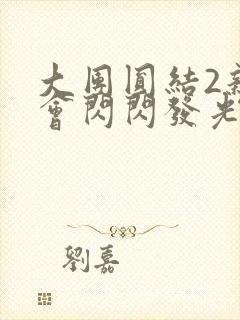 大團圓結2新
會閃閃發光
劉嘉